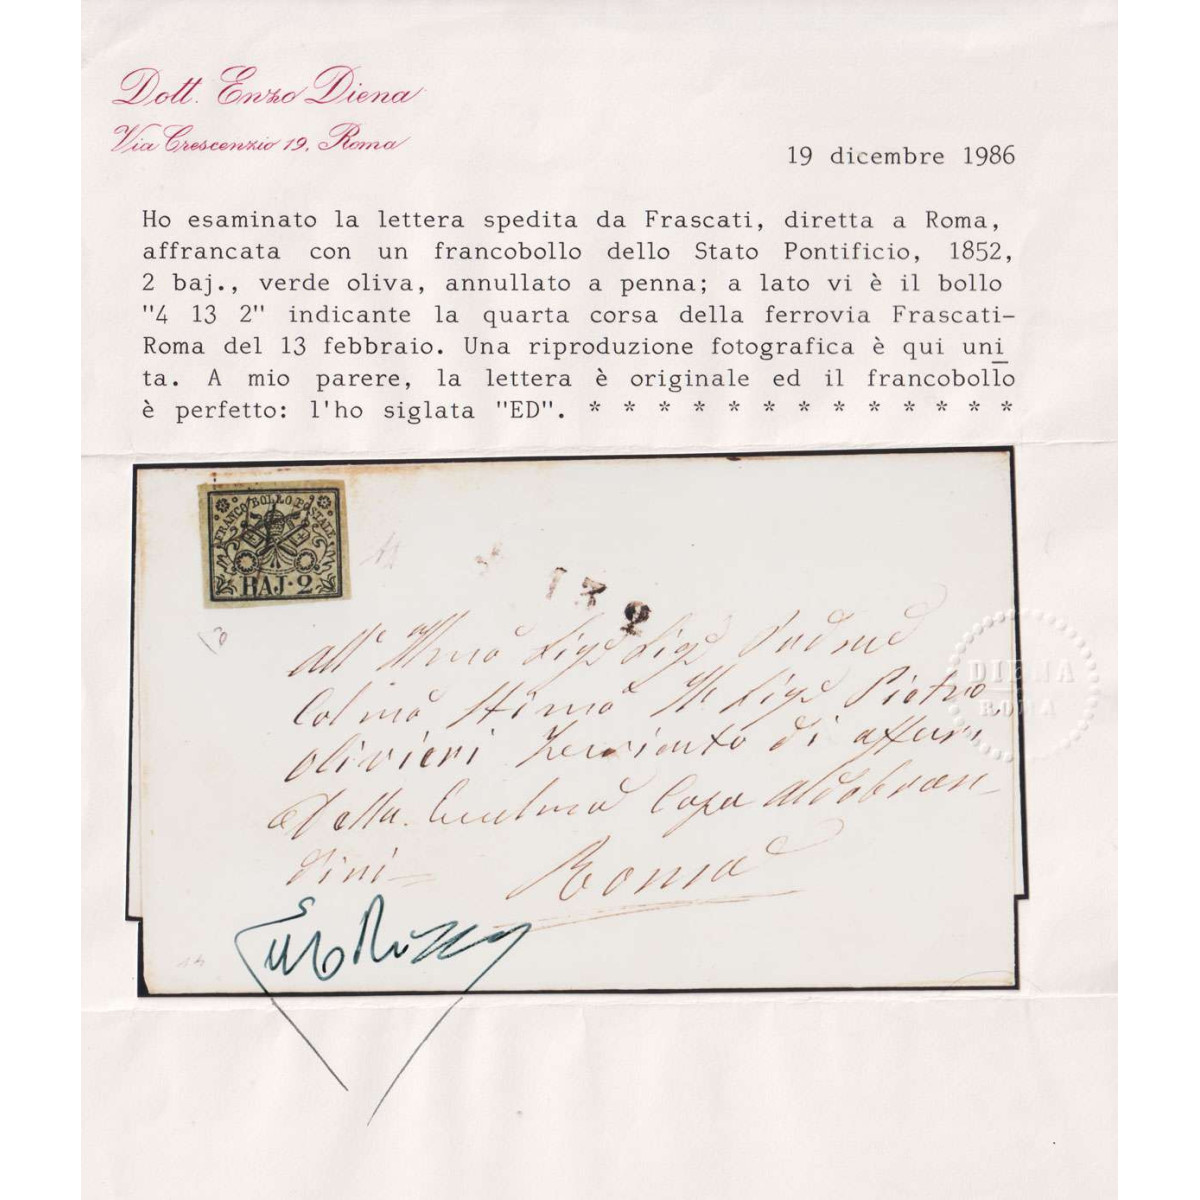 Dott. Enzo Diena
Via Crescenzio 19, Roma
19 dicembre 1986
Ho esaminato la lettera spedita da Frascati, diretta a Roma,
affrancata con un francobollo dello Stato Pontificio, 1852,
2 baj., verde oliva, annullato a penna; a lato vi è il bollo
"4 13 2" indicante la quarta corsa della ferrovia Frascati-
Roma del 13 febbraio. Una riproduzione fotografica è qui uni
ta. A mio parere, la lettera è originale ed il francobollo
è perfetto: l'ho siglata "ED". * * * * * * * * * * * * *
FRANCO BOLLO POSTALE
BAJ·2
13 2
Pietro
Olivieri di affari
Della Casa Aldobran-
dini-
Roma
DIENA
ROMA